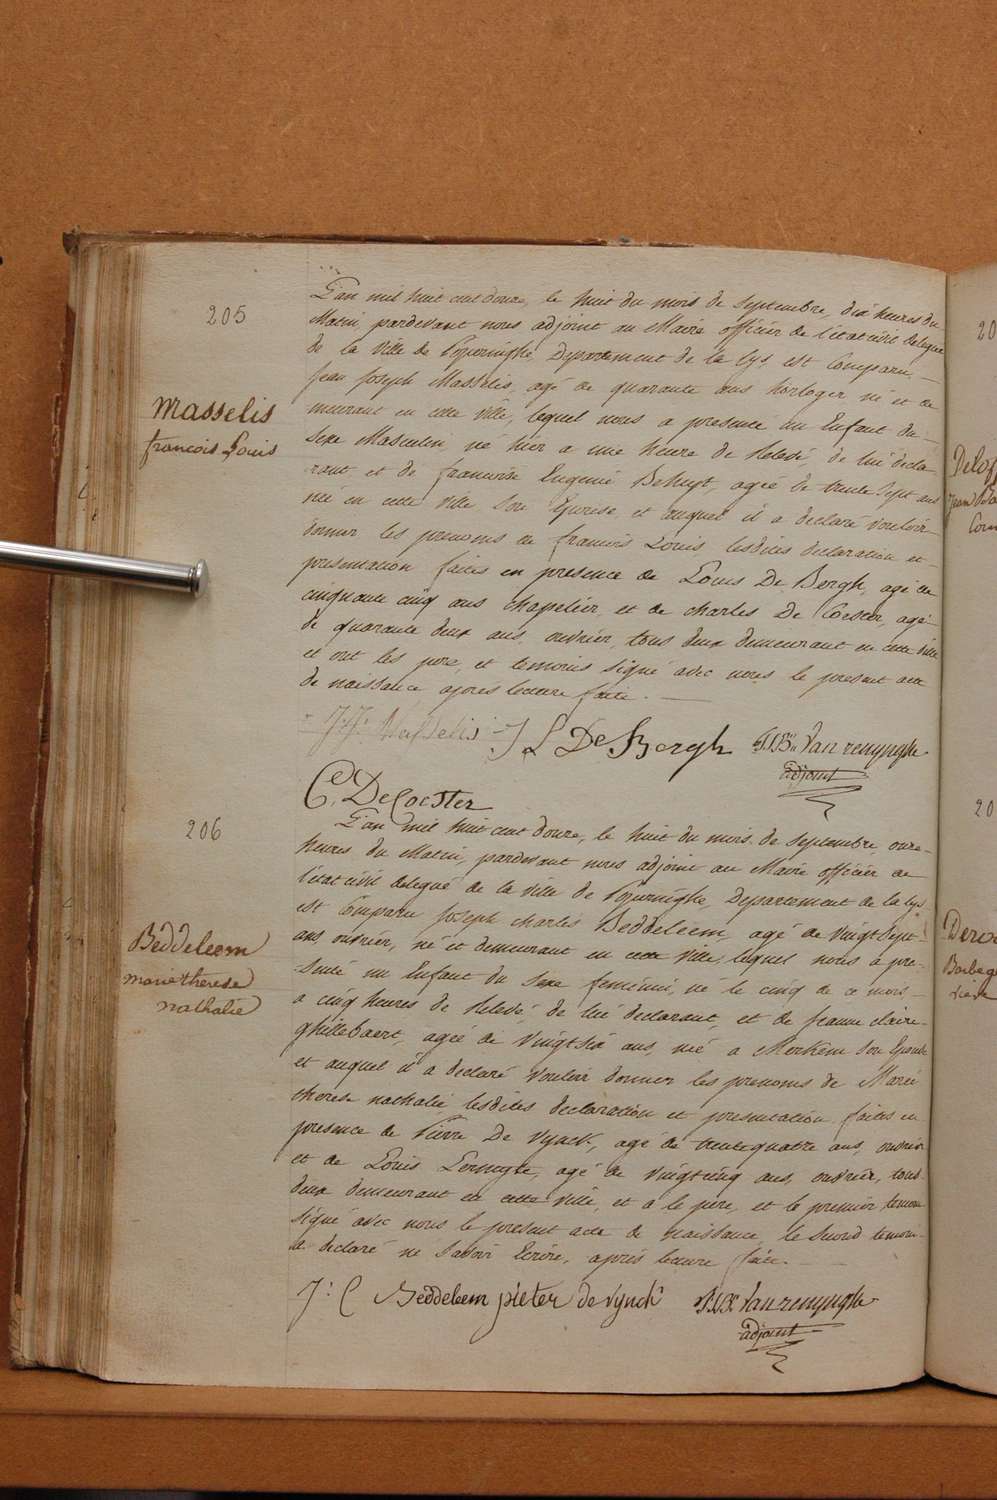 205
L'an mil huit cent douze, le huit du mois de Septembre, dix heures du
Matin, pardevant nous adjoint au Maire officier de l'état civil delegué
de la Ville de Poperinghe, Département de la Lys est Comparu
Jean Joseph Masselis, agé de quarante ans horloger né et de
meurant en cette ville, lequel nous a presenté un Enfant du
Sexe Masculin, né hier a une heure de Relevé, de lui décla
rant et de francoise Eugenie Behuyt, agée de trente sept ans
née en cette Ville Son Epouse et auquel il a declaré vouloir
donner les prenoms de francois Louis lesdites declaration et
presentation faites en presence de Louis De Bergh, agé de
cinquante cinq ans chapelier, et de charles De Coester, agé
de quarante deux ans, ouvrier, tous deux demeurant en cette ville
et ont les pere, et temoins signé avec nous le present acte
de naissance après lecture faite.
Masselis
francois Louis
J: J: Masselis J L De Bergh Van renynghe
adjoint
C. DeCoester
206
L'an mil huit cent douze, le huit du mois de Septembre, onze
heures du Matin, pardevant nous adjoint au Maire officier de
l'état civil delegué de la ville de Poperinghe, Département de la Lys
est Comparu Joseph charles Beddeleem, agé de Vingt Sept
ans, ouvrier, né et demeurant en cette Ville, lequel nous a pre-
senté un Enfant du Sexe feminin, né le cinq de ce mois,
a cinq heures de Relevé, de lui declarant, et de Jeanne claire
ghillebaert, agée de Vingt six ans, née a Merkem Son Epouse
et auquel il a declaré Vouloir donner les prenoms de Marie
therese nathalie lesdites declaration et presentation faites en
presence de Pierre De Vynck, agé de trente quatre ans, ouvrier
et de Louis agé de vingt cinq ans, ouvrier, tous
deux demeurant en cette ville, et a le père, et le premier temoin
signé avec nous le present acte de naissance, le Second temoin
a declaré ne Savoir Ecrire, après lecture faite.
Beddeleem
marie therese
nathalie
J: C Beddeleem pieter de Vynck Van renynghe
adjoint
20
Jean
20